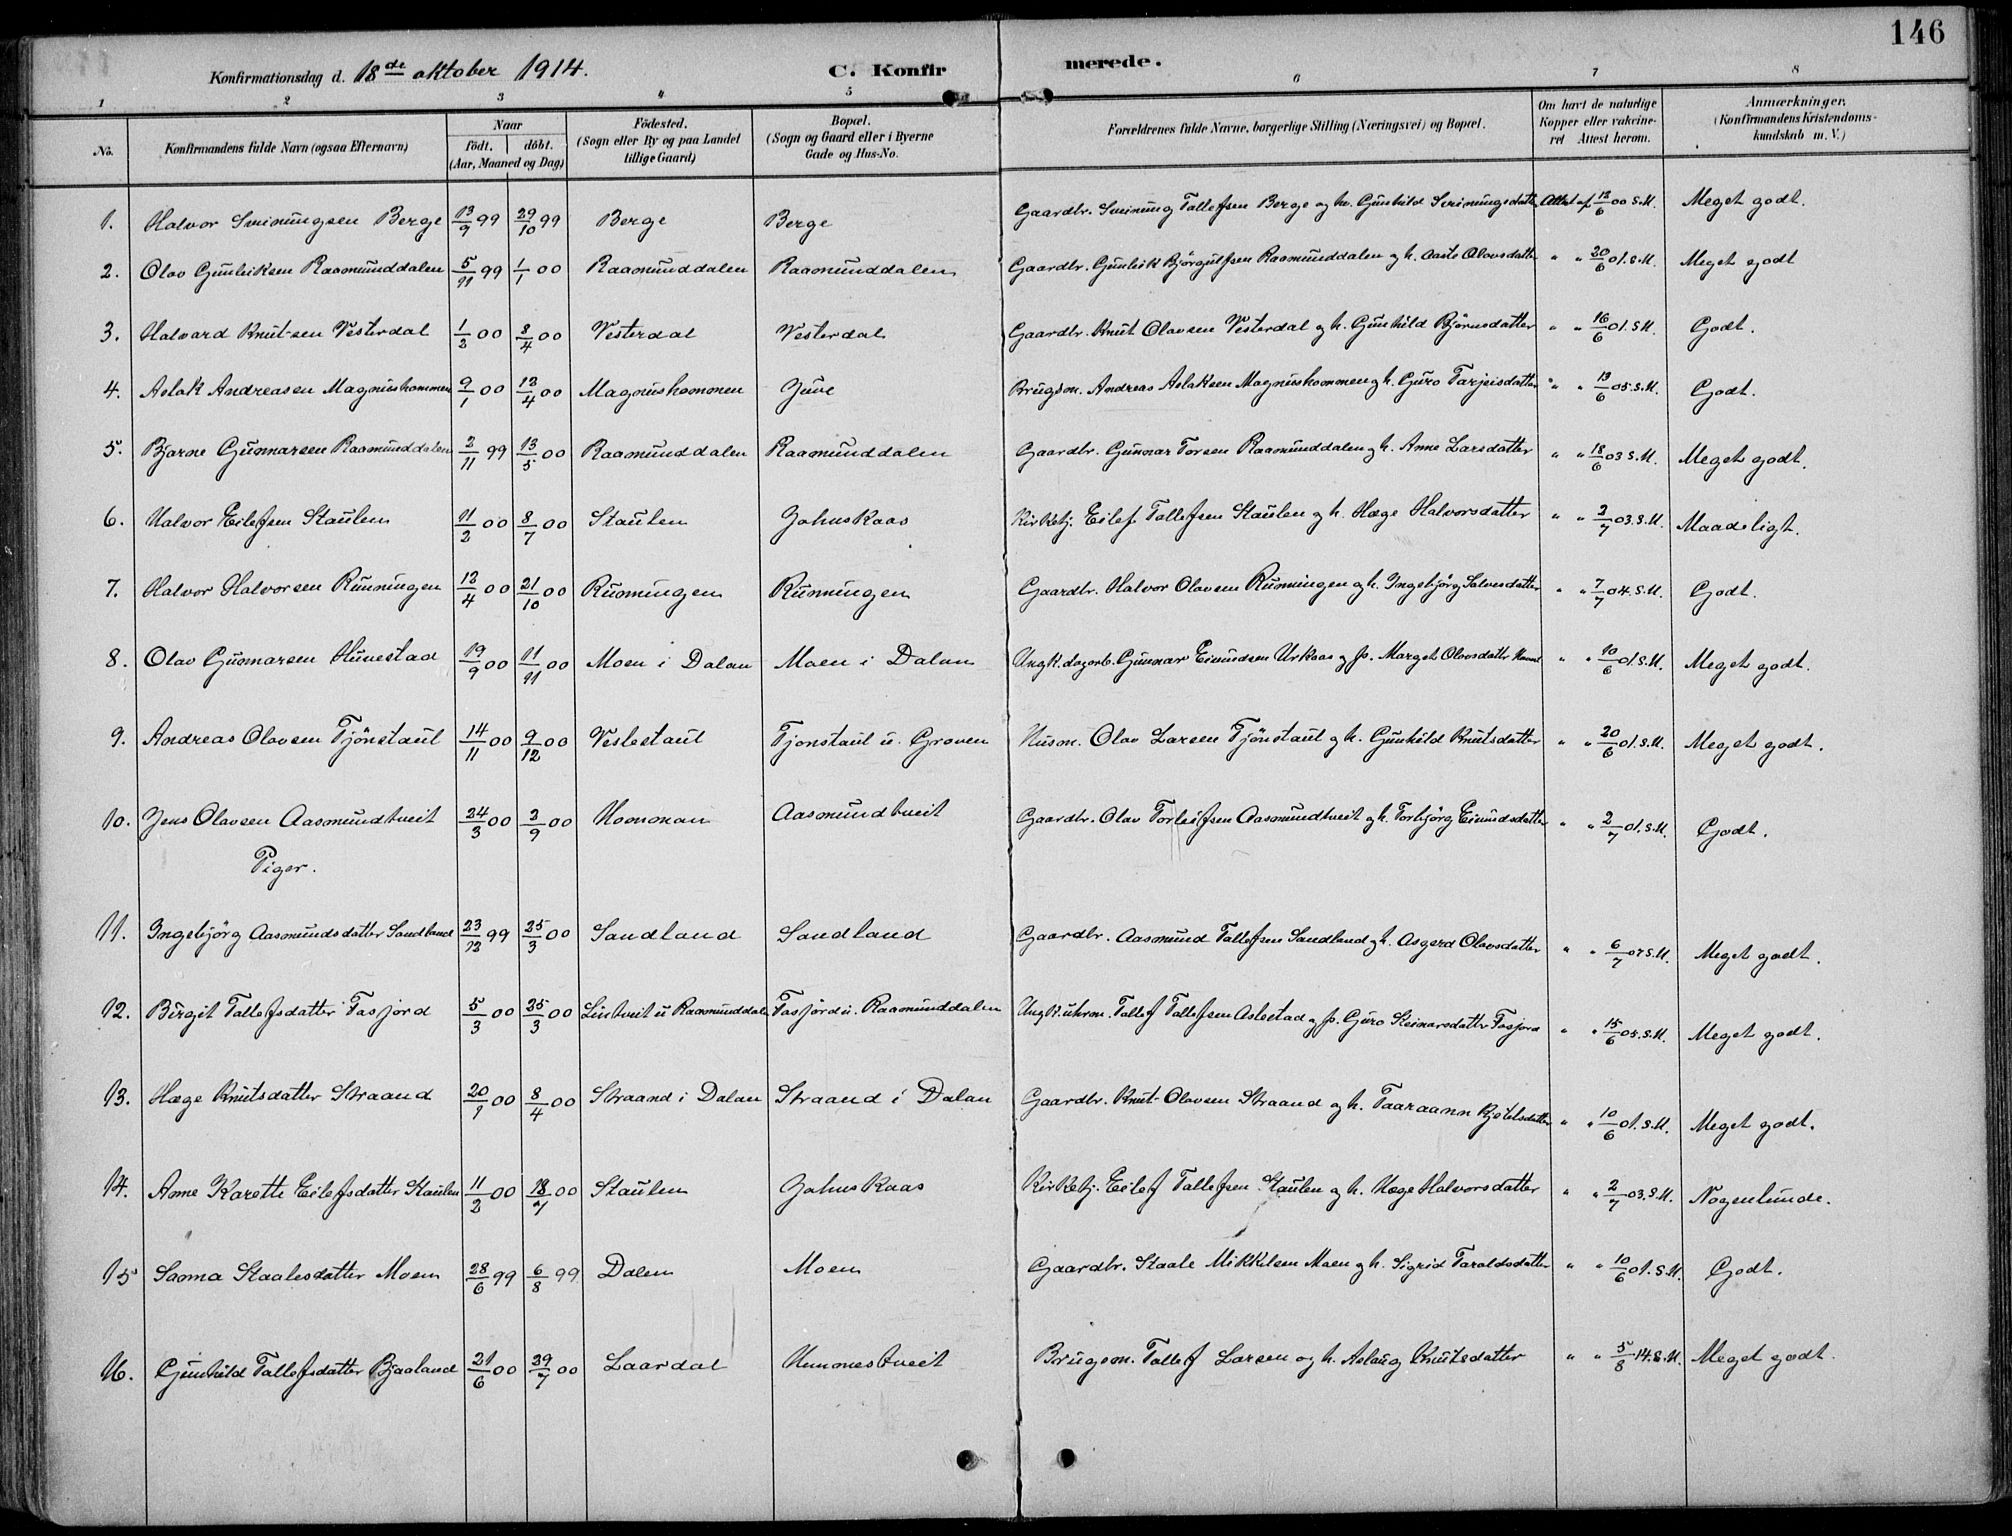 146
Konfirmationsdag d. 18de oktober 1914.
C. Konfirmerede.
1 2 3 4 5 6 7 8
No.
Konfirmandens fulde Navn (ogsaa Efternavn)
Naar
födt. döbt.
(Aar, Maaned og Dag)
Födested.
(Sogn eller By og paa Landet
tillige Gaard)
Bopæl.
(Sogn og Gaard eller i Byerne
Gade og Hus-No.
Forældrenes fulde Navne, borgerlige Stilling (Næringsvei) og Bopæl.
Om havt de naturlige
Kopper eller vakcine-
ret Attest herom.
Anmærkninger,
(Konfirmandens Kristendoms-
kundskab m. V.)
1. Halvor Sveinungsen Berge 13/9 99 29/10 99 Berge Berge Gaardbr. Sveinung Tallefsen Berge og h. Gunhild Sveinungsdatter Attest af 12/6 00 S.M. Meget godt.
2. Olav Gunleiksen Raamunddalen 5/11 99 1/1 00 Raamunddalen Raamunddalen Gaardbr. Gunleik Björgulfsen Raamunddalen og h. Aaste Olavsdatter " " 20/6 01. S.M. Meget godt
3. Halvard Knutsen Vesterdal 1/2 00 8/4 00 Vesterdal Vesterdal Gaardbr. Knut Olavsen Vesterdal og h. Gunhild Björnsdatter " " 16/6 01. S.M. Godt.
4. Aslak Andreasen Magnushommen 9/1 00 12/4 00 Magnushommen Juve Brugsm. Andreas Aslaksen Magnushommen og h. Guro Tarjeisdatter " " 13/6 05. S.M. Godt.
5. Bjarne Gunnarsen Raamunddalen 2/11 99 13/5 00 Raamunddalen Raamunddalen Gaardbr. Gunnar Torsen Raamunddalen og h. Anne Larsdatter " " 18/6 03 S.M. Meget godt.
6. Halvor Eilefsen Staulen 11/2 00 8/7 00 Staulen Jahuskaas Kirketj. Eilef Tallefsen Staulen og h. Hæge Halvorsdatter " " 2/7 03. S.M. Maadeligt.
7. Halvor Halvorsen Runningen 12/4 00 21/10 00 Runningen Runningen Gaardbr. Halvor Olavsen Runningen og h. Ingebjörg Salvesdatter " " 7/7 04. S.M. Godt.
8. Olav Gunnarsen Hunestad 19/9 00 11/11 00 Moen i Dalan Moen i Dalan Ungk. dagarb. Gunnar Eivindsen Urkaas og p. Marget Olavsdatter " " 10/6 01. S.M. Meget godt.
9. Andreas Olavsen Tjönstaul 14/11 00 9/12 00 Veslestaul Tjonstaul u. Groven Husm. Olav Larsen Tjönstaul og h. Gunhild Knutsdatter " " 20/6 01. S.M. Meget godt.
10. Jens Olavsen Aasmundtveit 24/3 00 2/9 00 Hommon Aasmundtveit Gaardbr. Olav Torleifsen Aasmundtveit og h. Torbjörg Eivindsdatter " " 2/7 01. S.M. Godt.
Piger.
11. Ingebjörg Aasmundsdatter Sandland 23/12 99 25/3 00 Sandland Sandland Gaardbr. Aasmund Tallefsen Sandland og h. Asgerd Olavsdatter " " 6/7 07 S.M. Meget godt.
12. Birgit Tallefsdatter Fasjord 5/3 00 25/3 00 Lintveit u Raamunddalen Fasjord u. Raamunddalen Ungk. uhrm. Tallef Tallefsen Aslestad og p. Guro Steinarsdatter Fasjord " " 15/6 05. S.M. Meget godt.
13. Hæge Knutsdatter Straand 20/1 00 8/4 00 Straand i Dalan Straand i Dalan Gaardbr. Knut Olavsen Straand og h. Taaraann Kjetilsdatter " " 10/6 01. S.M. Meget godt.
14. Anne Karette Eilefsdatter Staulen 11/2 00 18/7 00 Staulen Jahuskaas Kirketj. Eilef Tallefsen Staulen og h. Hæge Halvorsdatter " " 2/7 03. S.M. Nogenlunde.
15 Saoma Staalesdatter Moen 28/6 99 6/8 99 Dalen Moen Gaardbr. Staale Mikkelsen Moen og h. Sigrid Taraldsdatter " " 10/6 01. S.M. Godt.
16. Gunhild Tallefsdatter Bjaaland 21/6 00 29/7 00 Laardal Unnonestveit Brugsm. Tallef Larsen og h. Aslaug Knutsdatter " " 5/8 14. S.M. Meget godt.